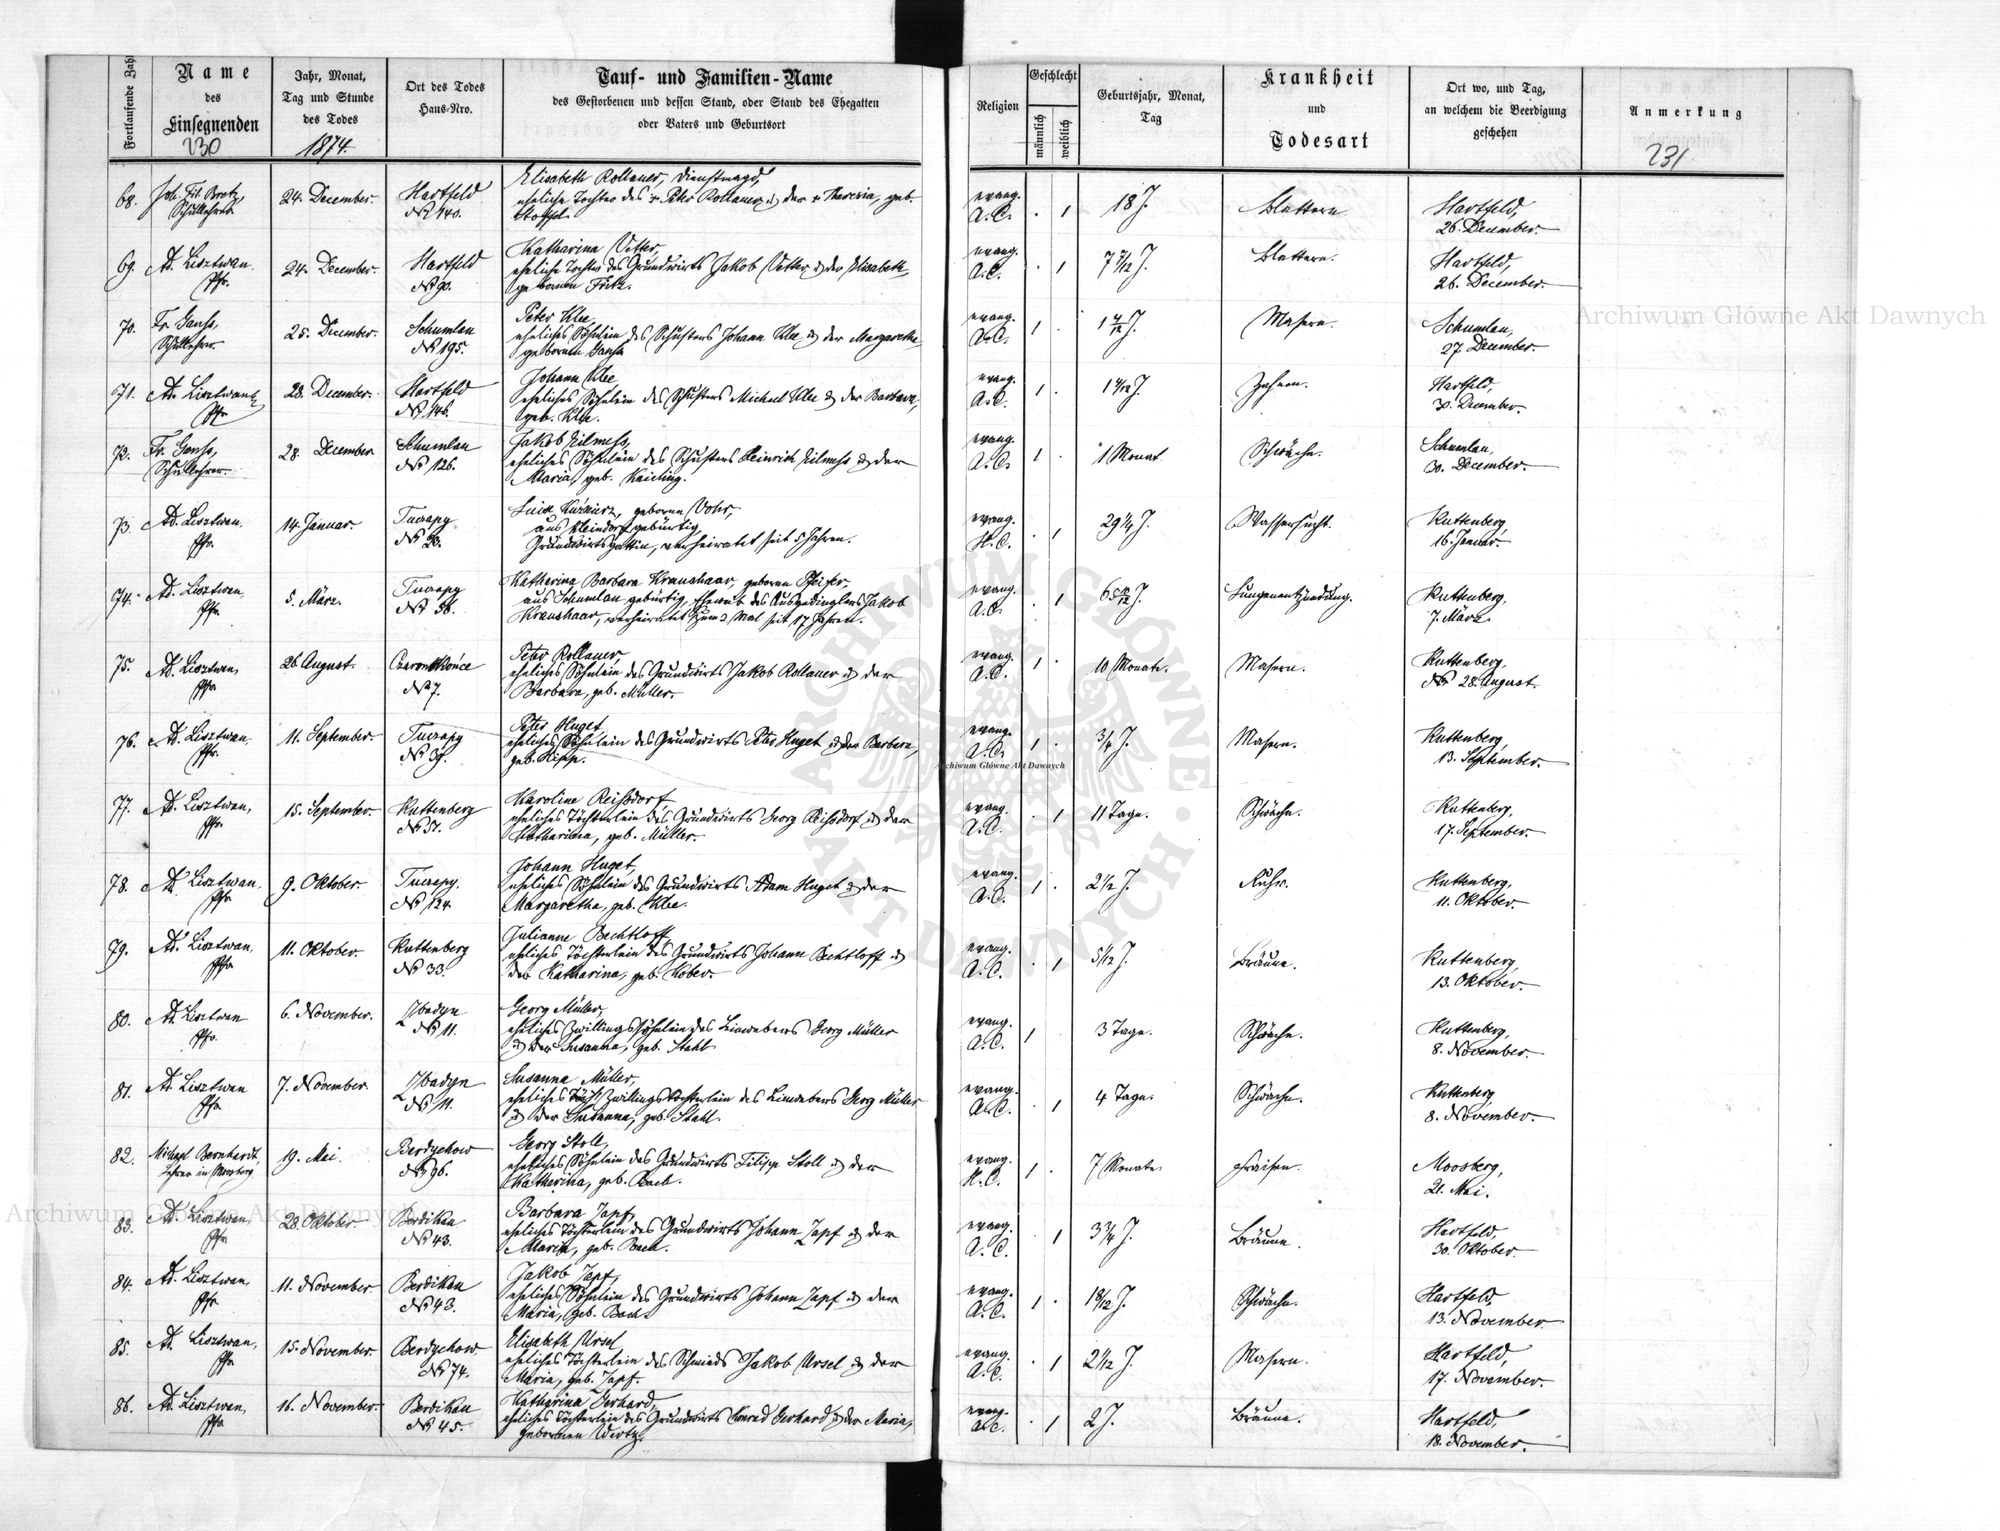 Fortlaufende Zahl
Name
des
Einsegnenden
230
Jahr, Monat,
Tag und Stunde
des Todes
1874.
Ort des Todes
Haus-Nro.
Tauf- und Familien-Name
des Gestorbenen und dessen Stand, oder Stand des Ehegatten
oder Vaters und Geburtsort
Religion
Geschlecht
männlich
weiblich
Geburtsjahr, Monat,
Tag
Krankheit
und
Todesart
Ort wo, und Tag,
an welchem die Beerdigung
geschehen
Anmerkung
231
68. Joh. Frd. Bretz, 24. December. Hartfeld Elisabeth Rollauer, Dienstmagd, evang. 1 18 J. Blattern. Hartfeld,
Schullehrer № 140. eheliche Tochter des + Peter Rollauer & der + Theresia, geb. A. C. 26. December.
Stoffel.
69. Ad. Lisztwan. 24. December. Hartfeld Katharina Vetter, evang. 1 7 7/12 J. Blattern. Hartfeld,
Pfr. № 90. eheliche Tochter des Grundwirts Jakob Vetter & der Elisabeth, A. C. 26. December.
gebornen Fritz.
70. Fr. Ganss, 25. December. Schumlau Peter Klee, evang. 1 1 4/12 J. Masern. Schumlau,
Schullehrer № 195. eheliches Söhnlein des Schusters Johann Klee & der Margaretha, A. C. 27. December.
gebornen Ganss
71. Ad. Lisztwan 28. December. Hartfeld Johann Klee, evang. 1 Zahnen. Hartfeld,
Pfr. № 146. eheliches Söhnlein des Schusters Michael Klee & der Barbara, A. C. 30. December.
geb. Klee.
72. Fr. Ganss, 28. December Schumlau Jakob Zilmess, evang. 1 1 Monat Schwäche. Schumlau,
Schullehrer. № 126. eheliches Söhnlein des Schusters Heinrich Zilmess & der A. C. 30. December.
Maria, geb. Keiling.
73. Ad. Lisztwan. 14. Januar. Tucrapy geborne Vohr, evang. 1 29 1/4 J. Wassersucht. Kuttenberg,
Pfr. № 23. aus Kleindorf gebürtig, H. C. 16. Januar.
Grundwirtsgattin, verheiratet seit 5 Jahren.
74. Ad. Lisztwan, 5. März. Tucrapy Katharina Barbara Kraushaar, geborne Pfeifer, evang. 1 Lungenentzündung. Kuttenberg,
Pfr. № 58. aus Schumlau gebürtig, Eheweib des Ausgedinglers Jakob A. C. 7. März.
Kraushaar, verheiratet zum 2 Mal seit 17 Jahren.
75. Ad. Lisztwan, 26. August. Czarnokońce Peter Rollauer, evang. 1 10 Monate. Masern. Kuttenberg,
Pfr. № 7. eheliches Söhnlein des Grundwirts Jakob Rollauer & der A. C. 28. August.
Barbara, geb. Müller.
76. Ad. Lisztwan, 11. September Tucrapy Peter Huget, evang. 1 3/4 J. Masern. Kuttenberg,
Pfr. № 39. eheliches Söhnlein des Grundwirts Peter Huget & der Barbara, A. C. 13. September.
geb. Hipp.
77. Ad. Lisztwan, 15. September. Kuttenberg Karoline Reißdorf evang. 1 11 Tage. Schwäche. Kuttenberg,
Pfr. № 51. eheliches Töchterlein des Grundwirts Georg Reißdorf & der A. C. 17. September.
Katharina, geb. Müller.
78. Ad. Lisztwan. 9. Oktober. Tucrapy. Johann Huget, evang. 1 2 1/2 J. Ruhr. Kuttenberg,
Pfr. № 124. eheliches Söhnlein des Grundwirts Adam Huget & der A. C. 11. Oktober.
Margaretha, geb. Klee.
79. Ad. Lisztwan. 11. Oktober. Kuttenberg Julianne Bechtloff, evang. 1 5/12 J. Bräune. Kuttenberg,
Pfr. № 33. eheliches Töchterlein des Grundwirts Johann Bechtloff & A. C. 13. Oktober.
der Katharina, geb. Kober.
80. Ad. Lisztwan 6. November. Zbadyn Georg Müller, evang. 1 3 Tage. Schwäche. Kuttenberg,
Pfr. № 11. eheliches Zwillingssöhnlein des Leinwebers Georg Müller A. C. 8. November.
& der Susanna, geb. Stahl.
81. Ad. Lisztwan 7. November Zbadyn Susanna Müller, evang. 1 4 Tage. Schwäche. Kuttenberg,
Pfr. № 11. eheliches Zwillingstöchterlein des Leinwebers Georg Müller A. C. 8. November.
& der Susanna, geb. Stahl.
82. Michael Bernhardt, 19. Mai. Berdychow Georg Stoll, evang. 1 7 Monate Fraisen. Moosberg,
Lehrer in Moosberg № 96. eheliches Söhnlein des Grundwirts Filipp Stoll & der H. C. 21. Mai.
Katharina, geb. Bach.
83. Ad. Lisztwan, 28. Oktober. Berdikau Barbara Zapf, evang. 1 3 3/4 J. Bräune. Hartfeld,
Pfr. № 43. eheliches Töchterlein des Grundwirts Johann Zapf & der A. C. 30. Oktober.
Maria, geb. Bach.
84. Ad. Lisztwan, 11. November Berdikau Jakob Zapf, evang. 1 Schwäche. Hartfeld,
Pfr. № 43. eheliches Söhnlein des Grundwirts Johann Zapf & der A. C. 13. November.
Maria, geb. Bach.
85. Ad. Lisztwan, 15. November Berdychow Elisabeth Ursel evang. 1 2 1/12 J. Masern. Hartfeld,
Pfr. № 74. eheliches Töchterlein des Schmieds Jakob Ursel & der A. C. 17. November.
Maria, geb. Zapf.
86. Ad. Lisztwan, 16. November. Berdikau Katharina Gerhard, evang. 1 2 J. Bräune. Hartfeld,
Pfr. № 45. eheliches Töchterlein des Grundwirts Konrad Gerhard & der Maria, A. C. 18. November.
gebornen Wirtz.
Archiwum Główne Akt Dawnych
Archiwum Główne Akt Dawnych
Archiwum Główne Akt Dawnych
ARCHIWUM GŁÓWNE AKT DAWNYCH